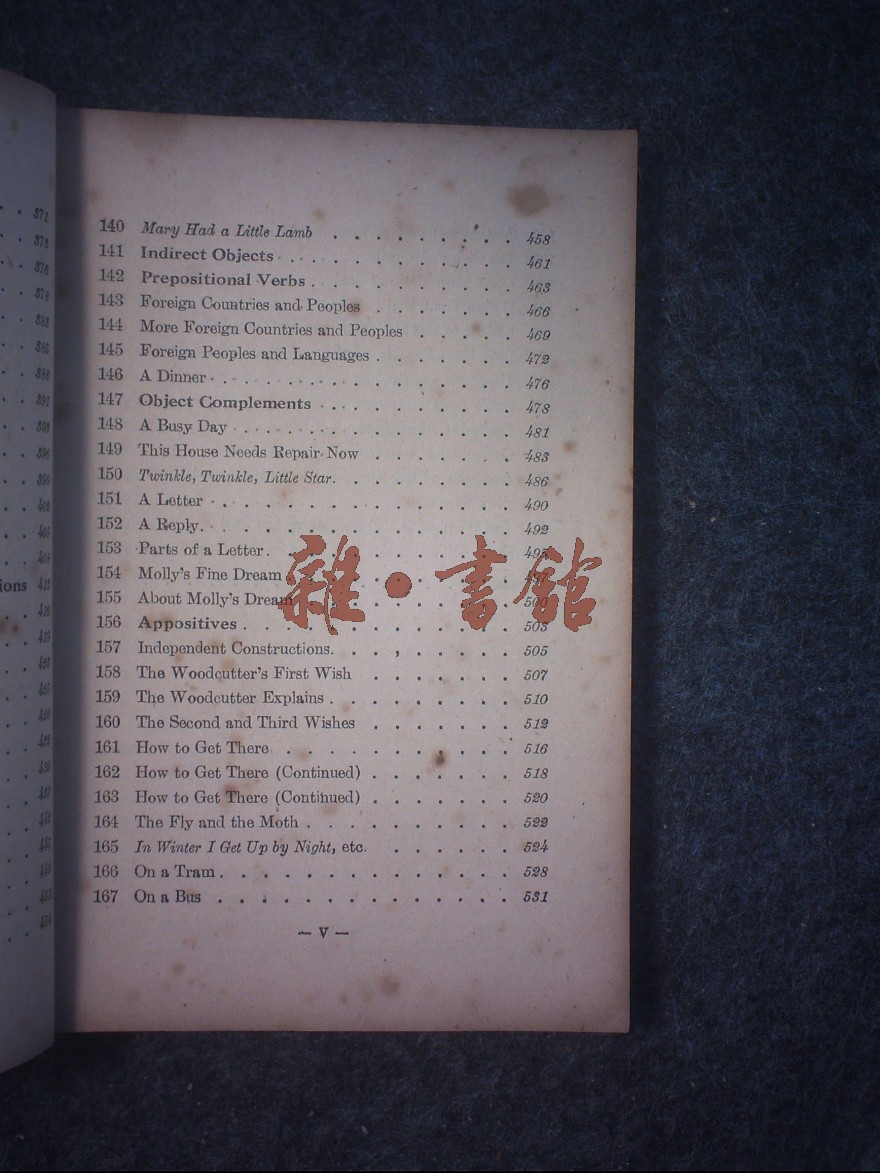 371
373
376
379
383
385
388
391
393
396
399
402
405
408
ions 411
140 Mary Had a Little Lamb . . . . . . . . . 458
141 Indirect Objects . . . . . . . . . . . 461
142 Prepositional Verbs . . . . . . . . . . 463
143 Foreign Countries and Peoples . . . . . . . 466
144 More Foreign Countries and Peoples . . . . . 469
145 Foreign Peoples and Languages . . . . . . . 472
146 A Dinner . . . . . . . . . . . . . 476
147 Object Complements . . . . . . . . . . 478
148 A Busy Day . . . . . . . . . . . . 481
149 This House Needs Repair Now . . . . . . . 483
150 Twinkle, Twinkle, Little Star . . . . . . . . 486
151 A Letter . . . . . . . . . . . . . 490
152 A Reply . . . . . . . . . . . . . 492
153 Parts of a Letter . . . . . . . . . . .
154 Molly's Fine Dream
155 About Molly's Dream 500
156 Appositives . . . . . . . . . . . . 503
157 Independent Constructions . . . . . . . . 505
158 The Woodcutter's First Wish . . . . . . . 507
159 The Woodcutter Explains . . . . . . . . . 510
160 The Second and Third Wishes . . . . . . . 512
161 How to Get There . . . . . . . . . . 516
162 How to Get There (Continued) . . . . . . . 518
163 How to Get There (Continued) . . . . . . . 520
164 The Fly and the Moth . . . . . . . . . . 522
165 In Winter I Get Up by Night, etc. . . . . . . 524
166 On a Tram . . . . . . . . . . . . . 528
167 On a Bus . . . . . . . . . . . . . 531
— V —
雜·書館